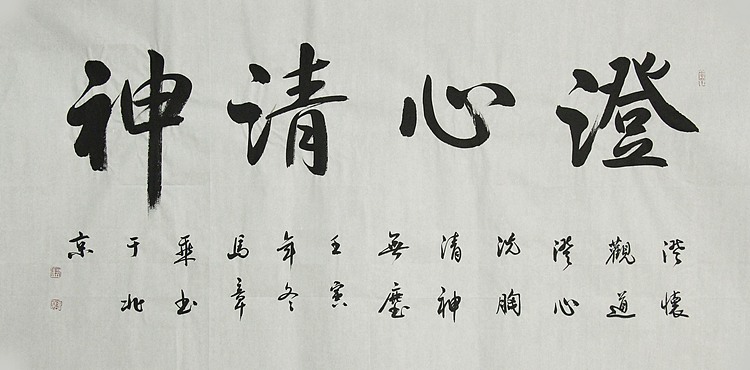 澄心清神
澄懷
觀道
澄心
洗胸
清神
無塵
壬寅
年冬
馬章
乘书
于北
京